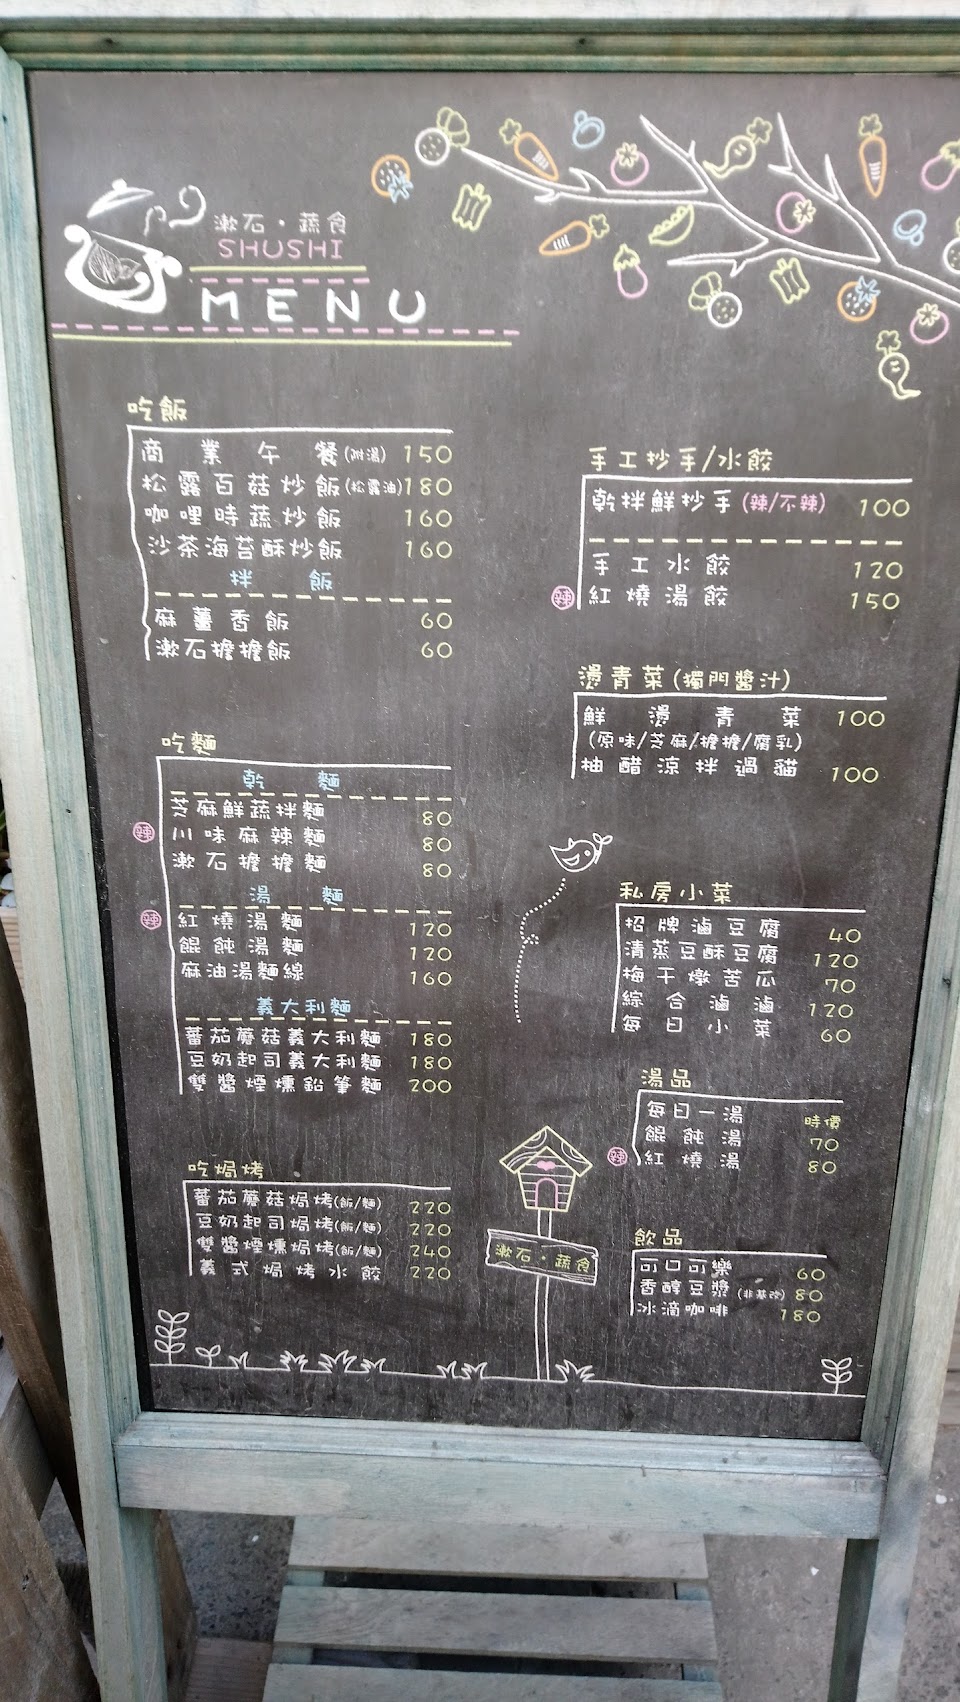 漱石·蔬食
SHUSHI
MENU
吃飯
商業午餐(附湯) 150
松露百菇炒飯(松露油) 180
咖哩時蔬炒飯 160
沙茶海苔酥炒飯 160
拌飯
麻薑香飯 60
漱石擔擔飯 60
吃麵
乾麵
芝麻鮮蔬拌麵 80
辣 川味麻辣麵 80
漱石擔擔麵 80
湯麵
辣 紅燒湯麵 120
餛飩湯麵 120
麻油湯麵線 160
義大利麵
蕃茄蘑菇義大利麵 180
豆奶起司義大利麵 180
雙醬煙燻鉛筆麵 200
吃焗烤
蕃茄蘑菇焗烤(飯/麵) 220
豆奶起司焗烤(飯/麵) 220
雙醬煙燻焗烤(飯/麵) 240
義式焗烤水餃 220
手工抄手/水餃
乾拌鮮抄手(辣/不辣) 100
手工水餃 120
辣 紅燒湯餃 150
燙青菜(獨門醬汁)
鮮燙青菜 100
(原味/芝麻/擔擔/腐乳)
柚醋涼拌過貓 100
私房小菜
招牌滷豆腐 40
清蒸豆酥豆腐 120
梅干燉苦瓜 70
綜合滷滷 120
每日小菜 60
湯品
每日一湯 時價
餛飩湯 70
辣 紅燒湯 80
飲品
可口可樂 60
香醇豆漿(非基改) 80
冰滴咖啡 180
漱石·蔬食